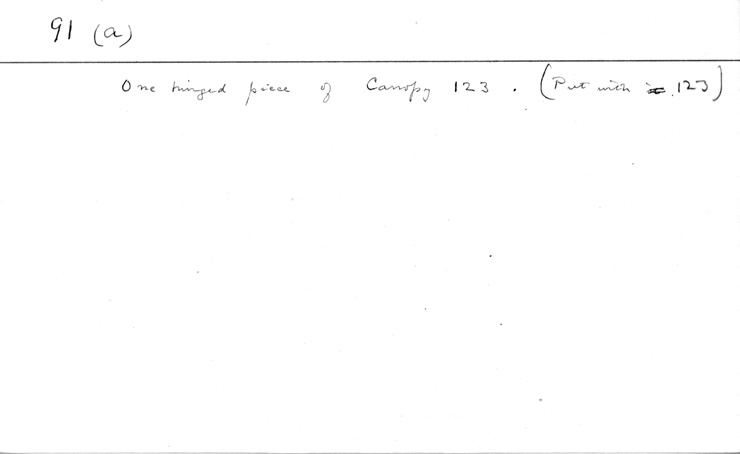 91 (a)
One hinged piece of Canopy 123. (Put with 123)